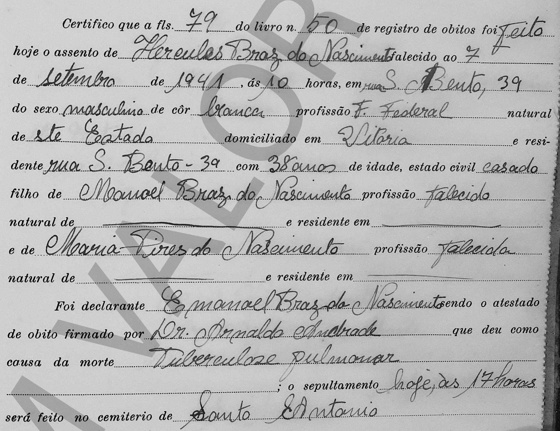 Certifico que a fls. 79 do livro n. 50 de registro de obitos foi feito
hoje o assento de Hercules Braz do Nascimento falecido ao 7
de setembro de 1941, ás 10 horas, em rua S. Bento, 39
do sexo masculino de côr branca profissão F. Federal natural
de ste Estado domiciliado em Vitoria e resi-
dente rua S. Bento - 39 com 38 anos de idade, estado civil casado
filho de Manoel Braz do Nascimento profissão falecido
natural de e residente em
e de Maria Pires do Nascimento profissão falecida
natural de e residente em
Foi declarante Emanoel Braz do Nascimento sendo o atestado
de obito firmado por Dr. Arnaldo Andrade que deu como
causa da morte Tuberculose pulmonar
; o sepultamento hoje, às 17 horas
será feito no cemiterio de Santo Antonio
M VALOR